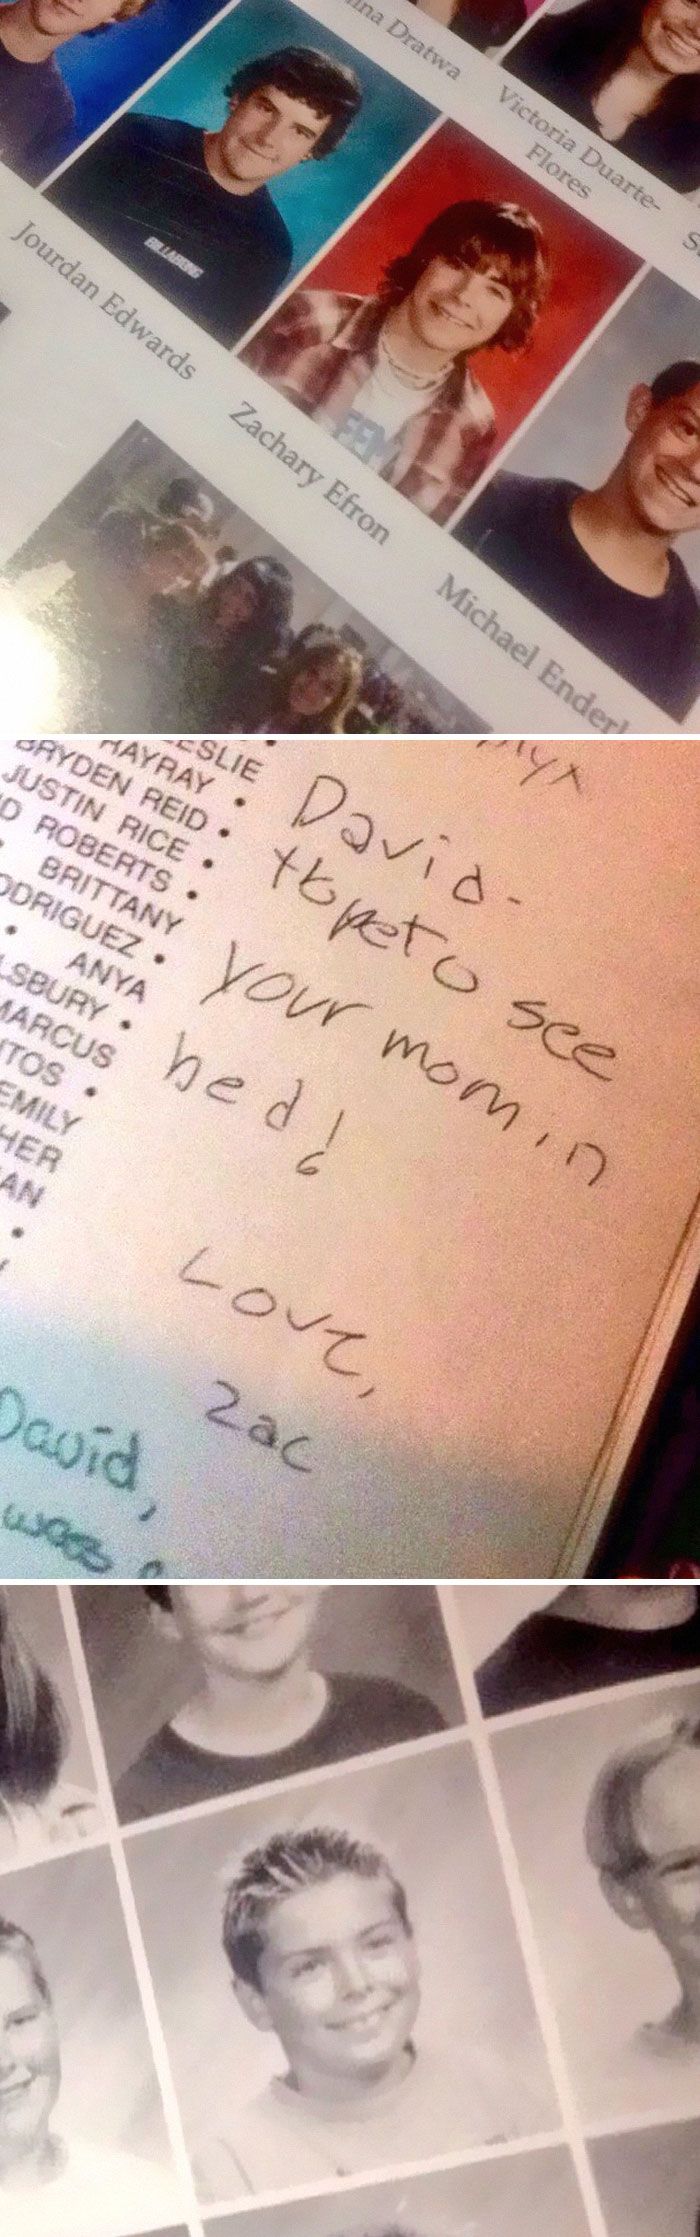 Dratwa
Victoria Duarte-
Flores
BILLABONG
Jourdan Edwards
Zachary Efron
Michael
LESLIE
RAYRAY •
BRYDEN REID •
JUSTIN RICE •
ROBERTS •
BRITTANY
ODRIGUEZ •
• ANYA
LSBURY •
MARCUS
ITOS •
EMILY
HER
AN
David-
Hope to see
your mom in
bed!
Love,
Zac
David,
was